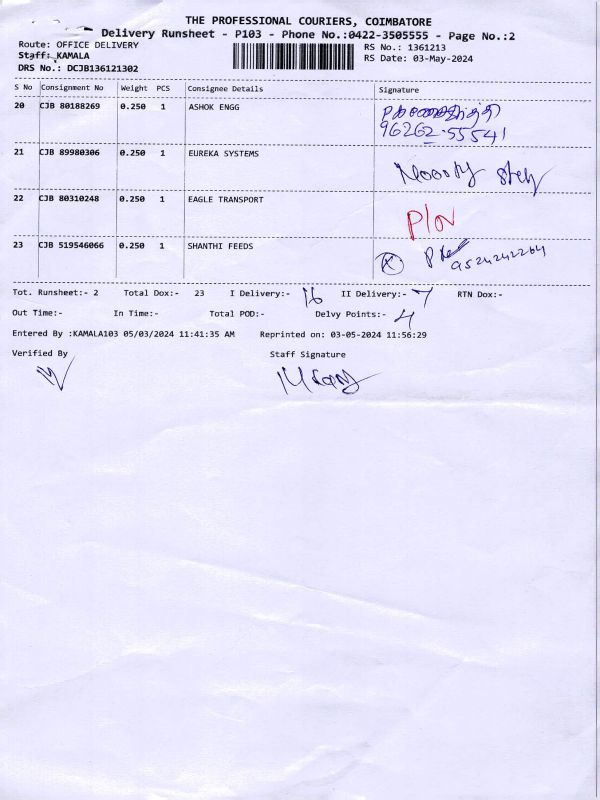 THE PROFESSIONAL COURIERS, COIMBATORE
Delivery Runsheet - P103 - Phone No.:0422-3505555 - Page No.:2
Route: OFFICE DELIVERY RS No.: 1361213
Staff: KAMALA RS Date: 03-May-2024
DRS No.: DCJB136121302
S No Consignment No Weight PCS Consignee Details Signature
20 CJB 80188269 0.250 1 ASHOK ENGG
96262-55541
21 CJB 89980306 0.250 1 EUREKA SYSTEMS
22 CJB 80310248 0.250 1 EAGLE TRANSPORT
23 CJB 519546066 0.250 1 SHANTHI FEEDS
9524242264
Tot. Runsheet:- 2 Total Dox:- 23 I Delivery:- 16 II Delivery:- 7 RTN Dox:-
Out Time:- In Time:- Total POD:- Delvy Points:- 4
Entered By :KAMALA103 05/03/2024 11:41:35 AM Reprinted on: 03-05-2024 11:56:29
Verified By Staff Signature